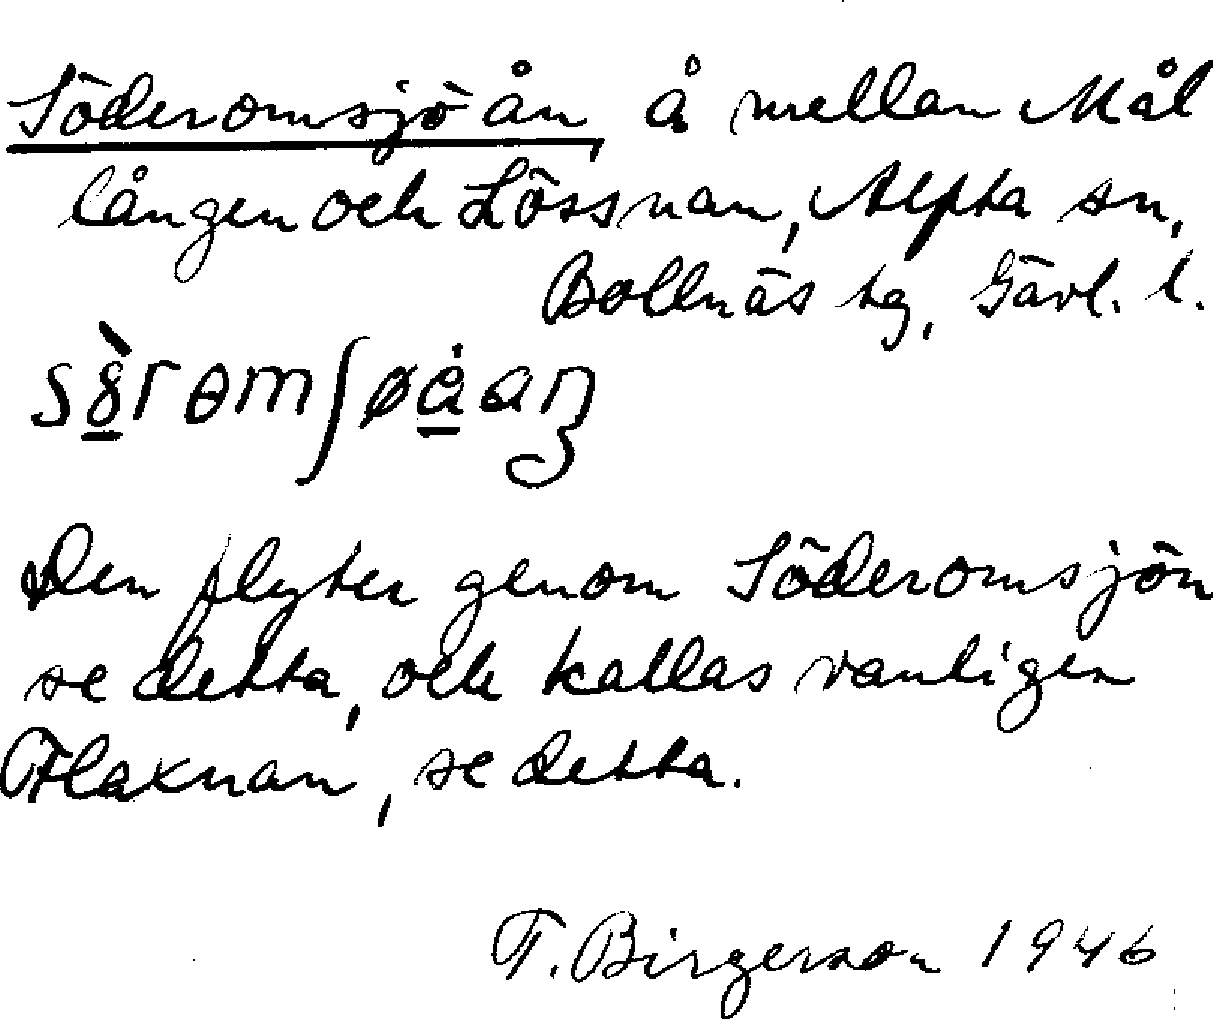 Söderomsjöån, å mellan Mål
lången och Lössnan, Alfta sn,
Bollnäs tg, Gävl. l.
Den flyter genom Söderomsjön
se detta, och kallas vanligen
Flaxnan, se detta.
F. Birgerson 1946